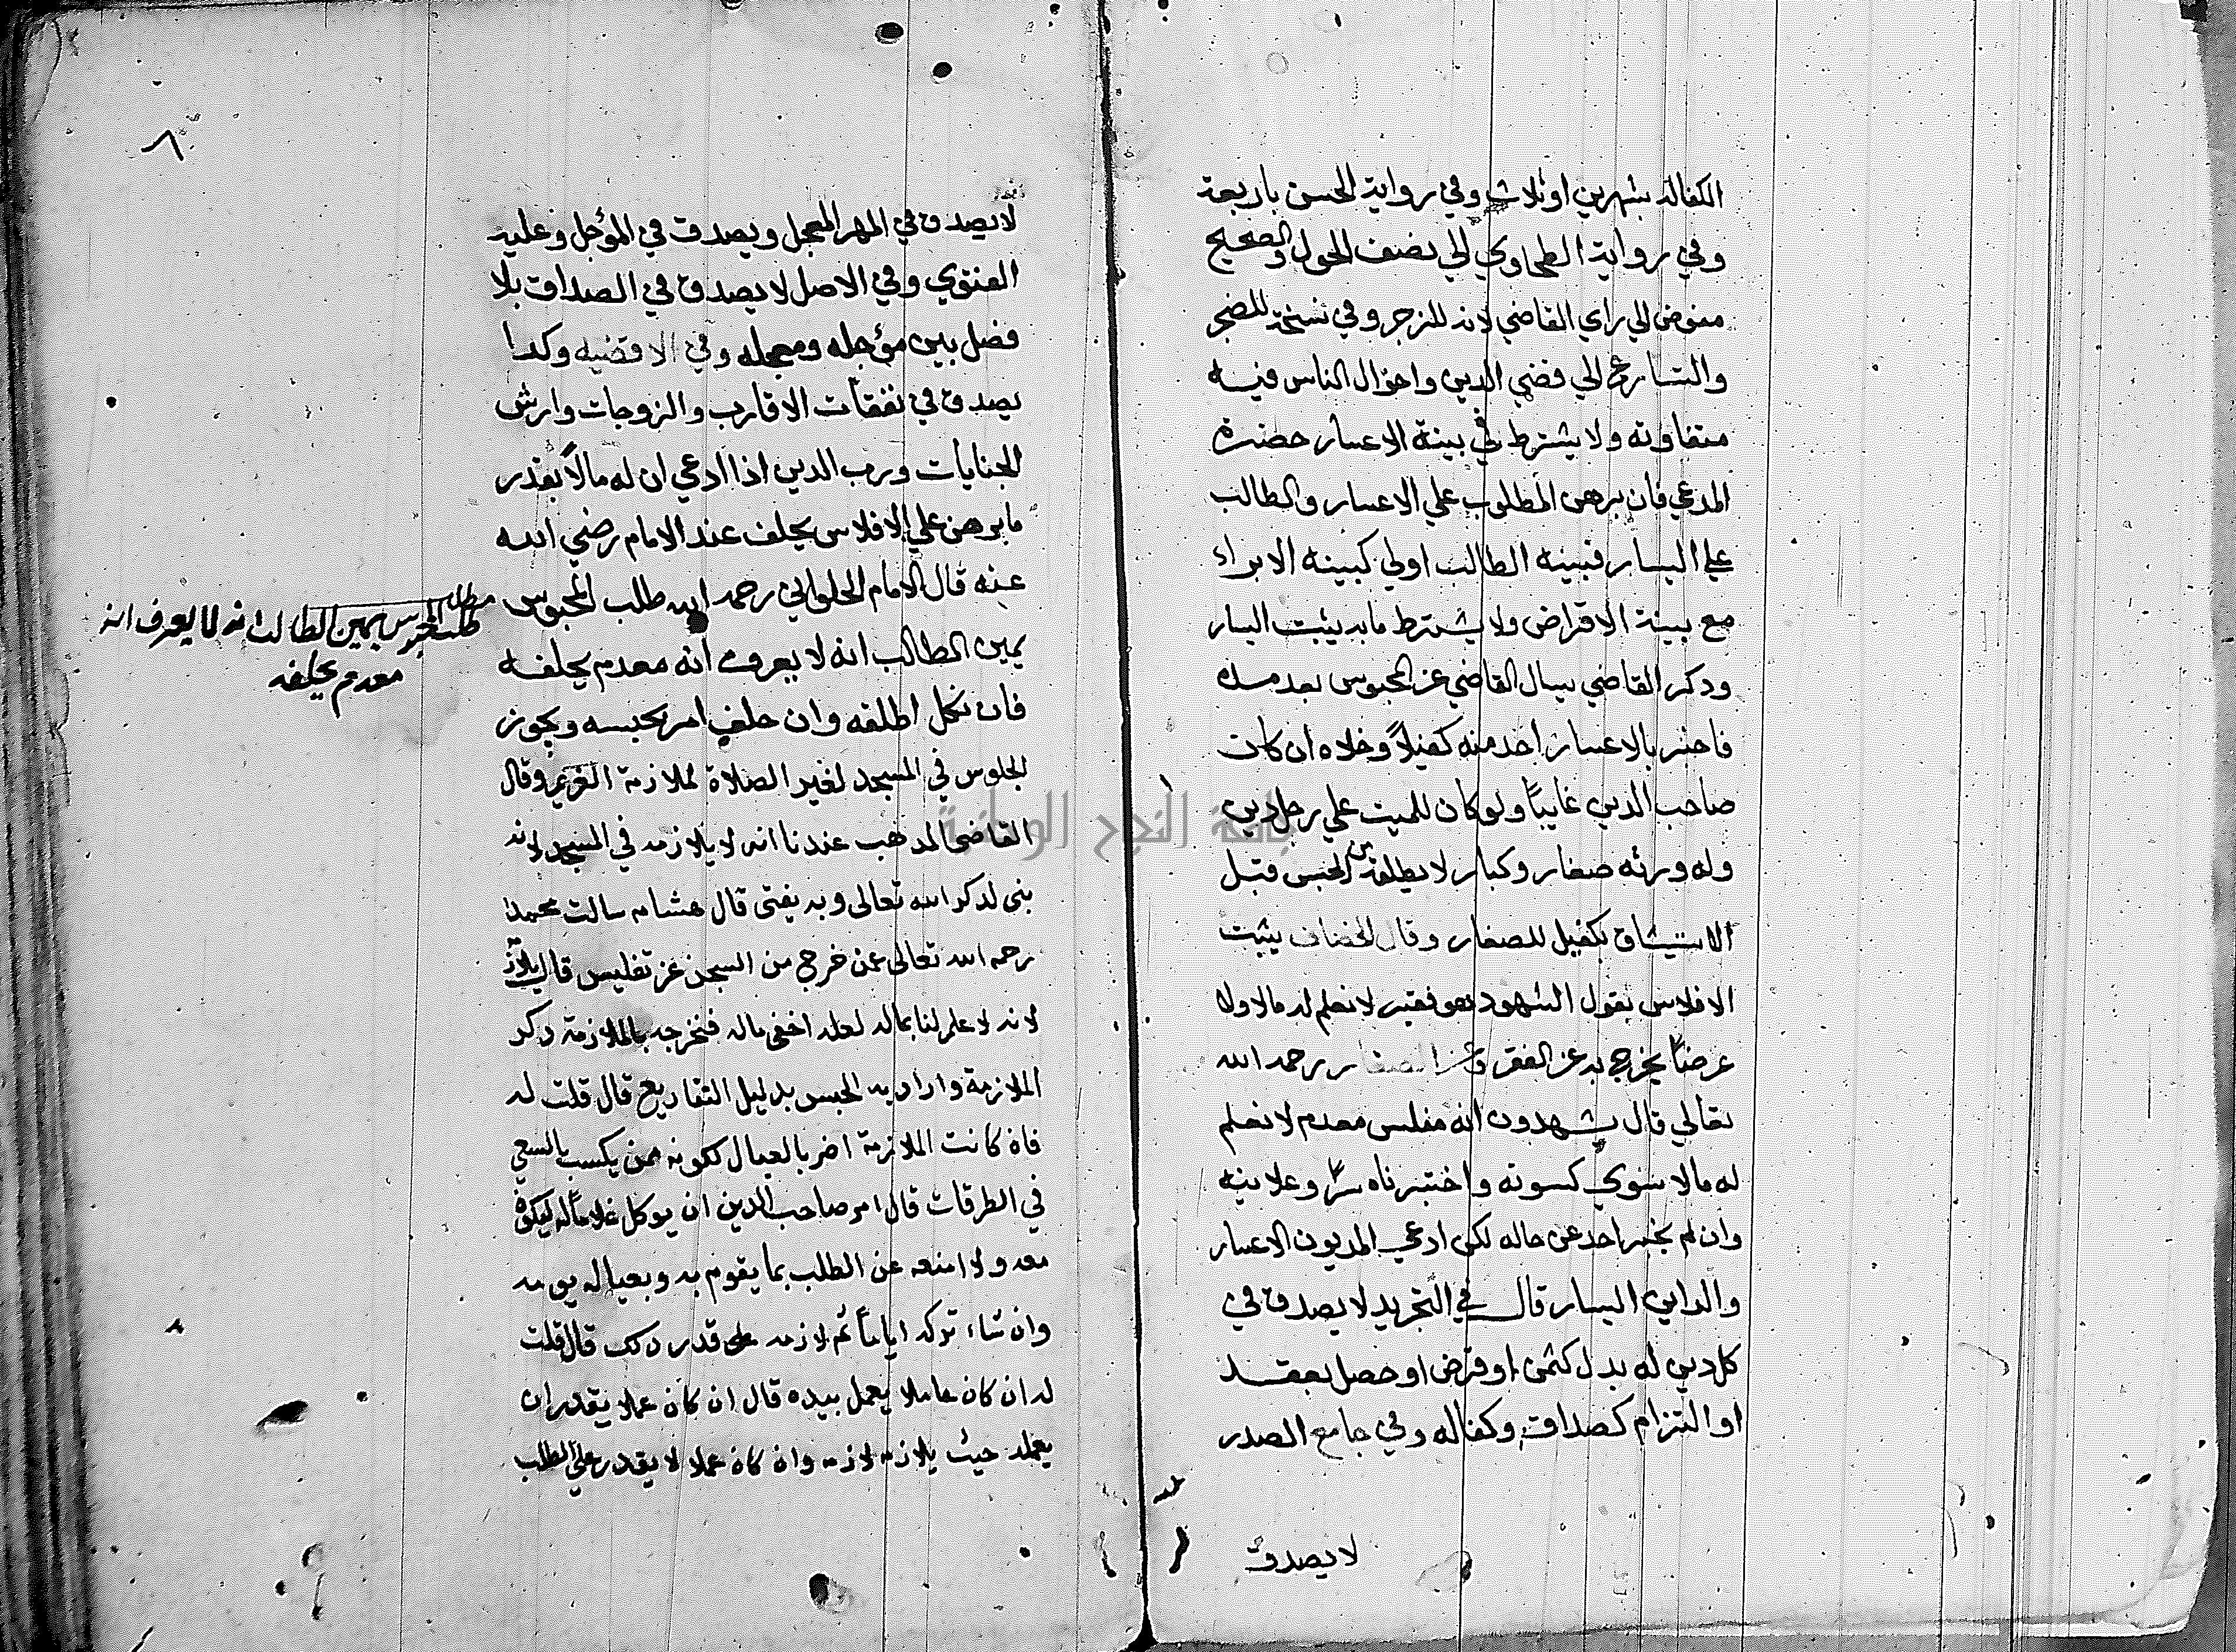 الكفالة بشهرين او ثلاث وفي رواية الحسن باربعة
وفي رواية الطحاوي الي نصف الحول والصحيح
مفوض الي راي القاضي لانه للزجر وفي نسخة للضجر
والتسارع الي قضي الدين واحوال الناس فيه
متفاوته ولا يشترط في بينة الاعسار حضرة
المدعي فان برهن المطلوب علي الاعسار والطالب
علي اليسار فبينه الطالب اولي كبينه الابراء
مع بينة الاقراض ولا يشترط ما به يثبت اليسار
وذكر القاضي يسال القاضي عن المحبوس بعد مده
فاخبر بالاعسار اخذ منه كفيلاً وخلاه ان كان
صاحب الدين غايباً ولو كان للميت علي رجل دين
وله ورثه صغار وكبار لا يطلقه من الحبس قبل
الاستيثاق بكفيل للصغار وقال الخصاف يثبت
الافلاس بقول الشهود هو فقير لا نعلم له مالا ولا
عرضاً يخرج به عن الفقر وعن الصفار رحمه الله
تعالي قال يشهدون انه مفلس معدم لا نعلم
له مالا سوي كسوته واختبرناه سراً وعلانيه
وان لم يخبر احد عن حاله لكن ادعي المديون الاعسار
والداين اليسار قال في التجريد لا يصدق في
كل دين له بدل كثمن او قرض او حصل بعقد
او التزام كصداق وكفاله وفي جامع الصدر
لا يصدق
٨
لا يصدق في المهر المعجل ويصدق في المؤجل وعليه
الفتوي وفي الاصل لا يصدق في الصداق بلا
فصل بين مؤجله ومعجله وفي الاقضيه وكذا
يصدق في نفقات الاقارب والزوجات وارش
الجنايات ورب الدين اذا ادعي ان له مالاً بقدر
ما برهن علي الافلاس يحلف عند الامام رضي الله
عنه قال الامام الحلواني رحمه الله طلب المحبوس
يمين الطالب انه لا يعرف انه معدم يحلفه
فان نكل اطلقه وان حلف امر بحبسه ويجوز
الجلوس في المسجد لغير الصلاة لملازمة الغريم وقال
القاضى المذهب عندنا انه لا يلازمه في المسجد لانه
بنى لذكر الله تعالى وبه يفتى قال هشام سالت محمدا
رحمه الله تعالى عمن خرج من السجن عن تفليس قال يلازم
لانه لا علم لنا بماله لعله اخفى ماله فنخرجه بالملازمة ذكر
الملازمة واراد به الحبس بدليل التفاريع قال قلت له
فان كانت الملازمة اضر بالعيال لكونه ممن يكسب بالسعي
في الطرقات قال امر صاحب الدين ان يوكل غلاما له ليكون
معه ولا امنعه عن الطلب بما يقوم به وبعياله يومه
وان شاء تركه اياماً ثم لازمه على قدر ذلك قال قلت
له ان كان عاملا يعمل بيده قال ان كان عملا يقدر ان
يعمله حيث يلازمه لازمه وان كان عملا لا يقدر على الطلب
مطلب
طلب المحبوس يمين الطالب انه لا يعرف انه
معدم يحلفه
جامعة النجاح الوطنية